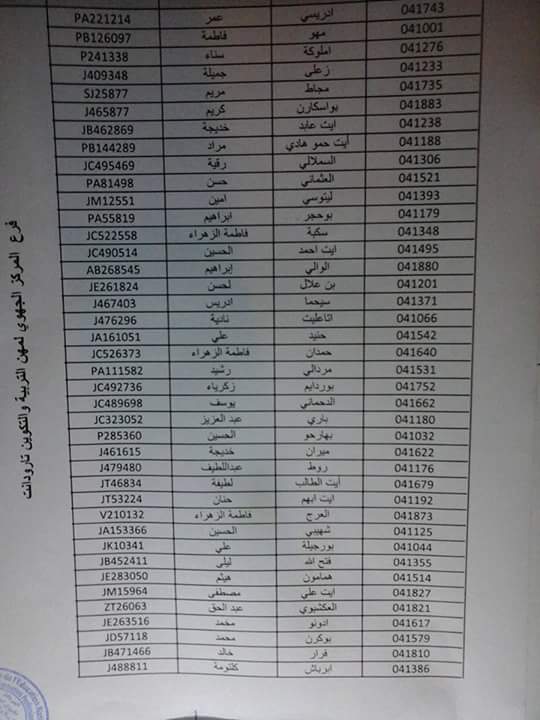 041743 ادريسي عمر PA221214
041001 مهو فاطمة PB126097
041276 املوكة سناء P241338
041233 زعلي جميلة J409348
041735 مجاط مريم SJ25877
041883 بواسكارن كريم J465877
041238 ايت عابد خديجة JB462869
041188 أيت حمو هادي مراد PB144289
041306 السملالي رقية JC495469
041521 العثماني حسن PA81498
041393 ليتوسي امين JM12551
041179 بوحجر ابراهيم PA55819
041348 سكية فاطمة الزهراء JC522558
041495 ايت احمد الحسين JC490514
041880 الوالي إبراهيم AB268545
041201 بن علال لحسن JE261824
041371 سيحما ادريس J467403
041066 اتاعليت نادية J476296
041542 حنيد علي JA161051
041640 حمدان فاطمة الزهراء JC526373
041531 مردالي رشيد PA111582
041752 بوردايم زكرياء JC492736
041662 الدحماني يوسف JC489698
041180 باري عبد العزيز JC323052
041032 بهارحو الحسين P285360
041622 ميران خديجة J461615
041176 روط عبداللطيف J479480
041679 أيت الطالب لطيفة JT46834
041192 ايت ابهم حنان JT53224
041873 العرج فاطمة الزهراء V210132
041125 شهيبي الحسين JA153366
041044 بورجيلة علي JK10341
041355 فتح الله ليلى JB452411
041514 همامون هيثم JE283050
041827 ايت علي مصطفى JM15964
041821 العكشيوي عبد الحق ZT26063
041617 ادونو محمد JE263516
041579 بوكرن محمد JD57118
041810 فرار خالد JB471466
041386 ابرباش كلثومة J488811
فرع المركز الجهوي لمهن التربية والتكوين تارودانت